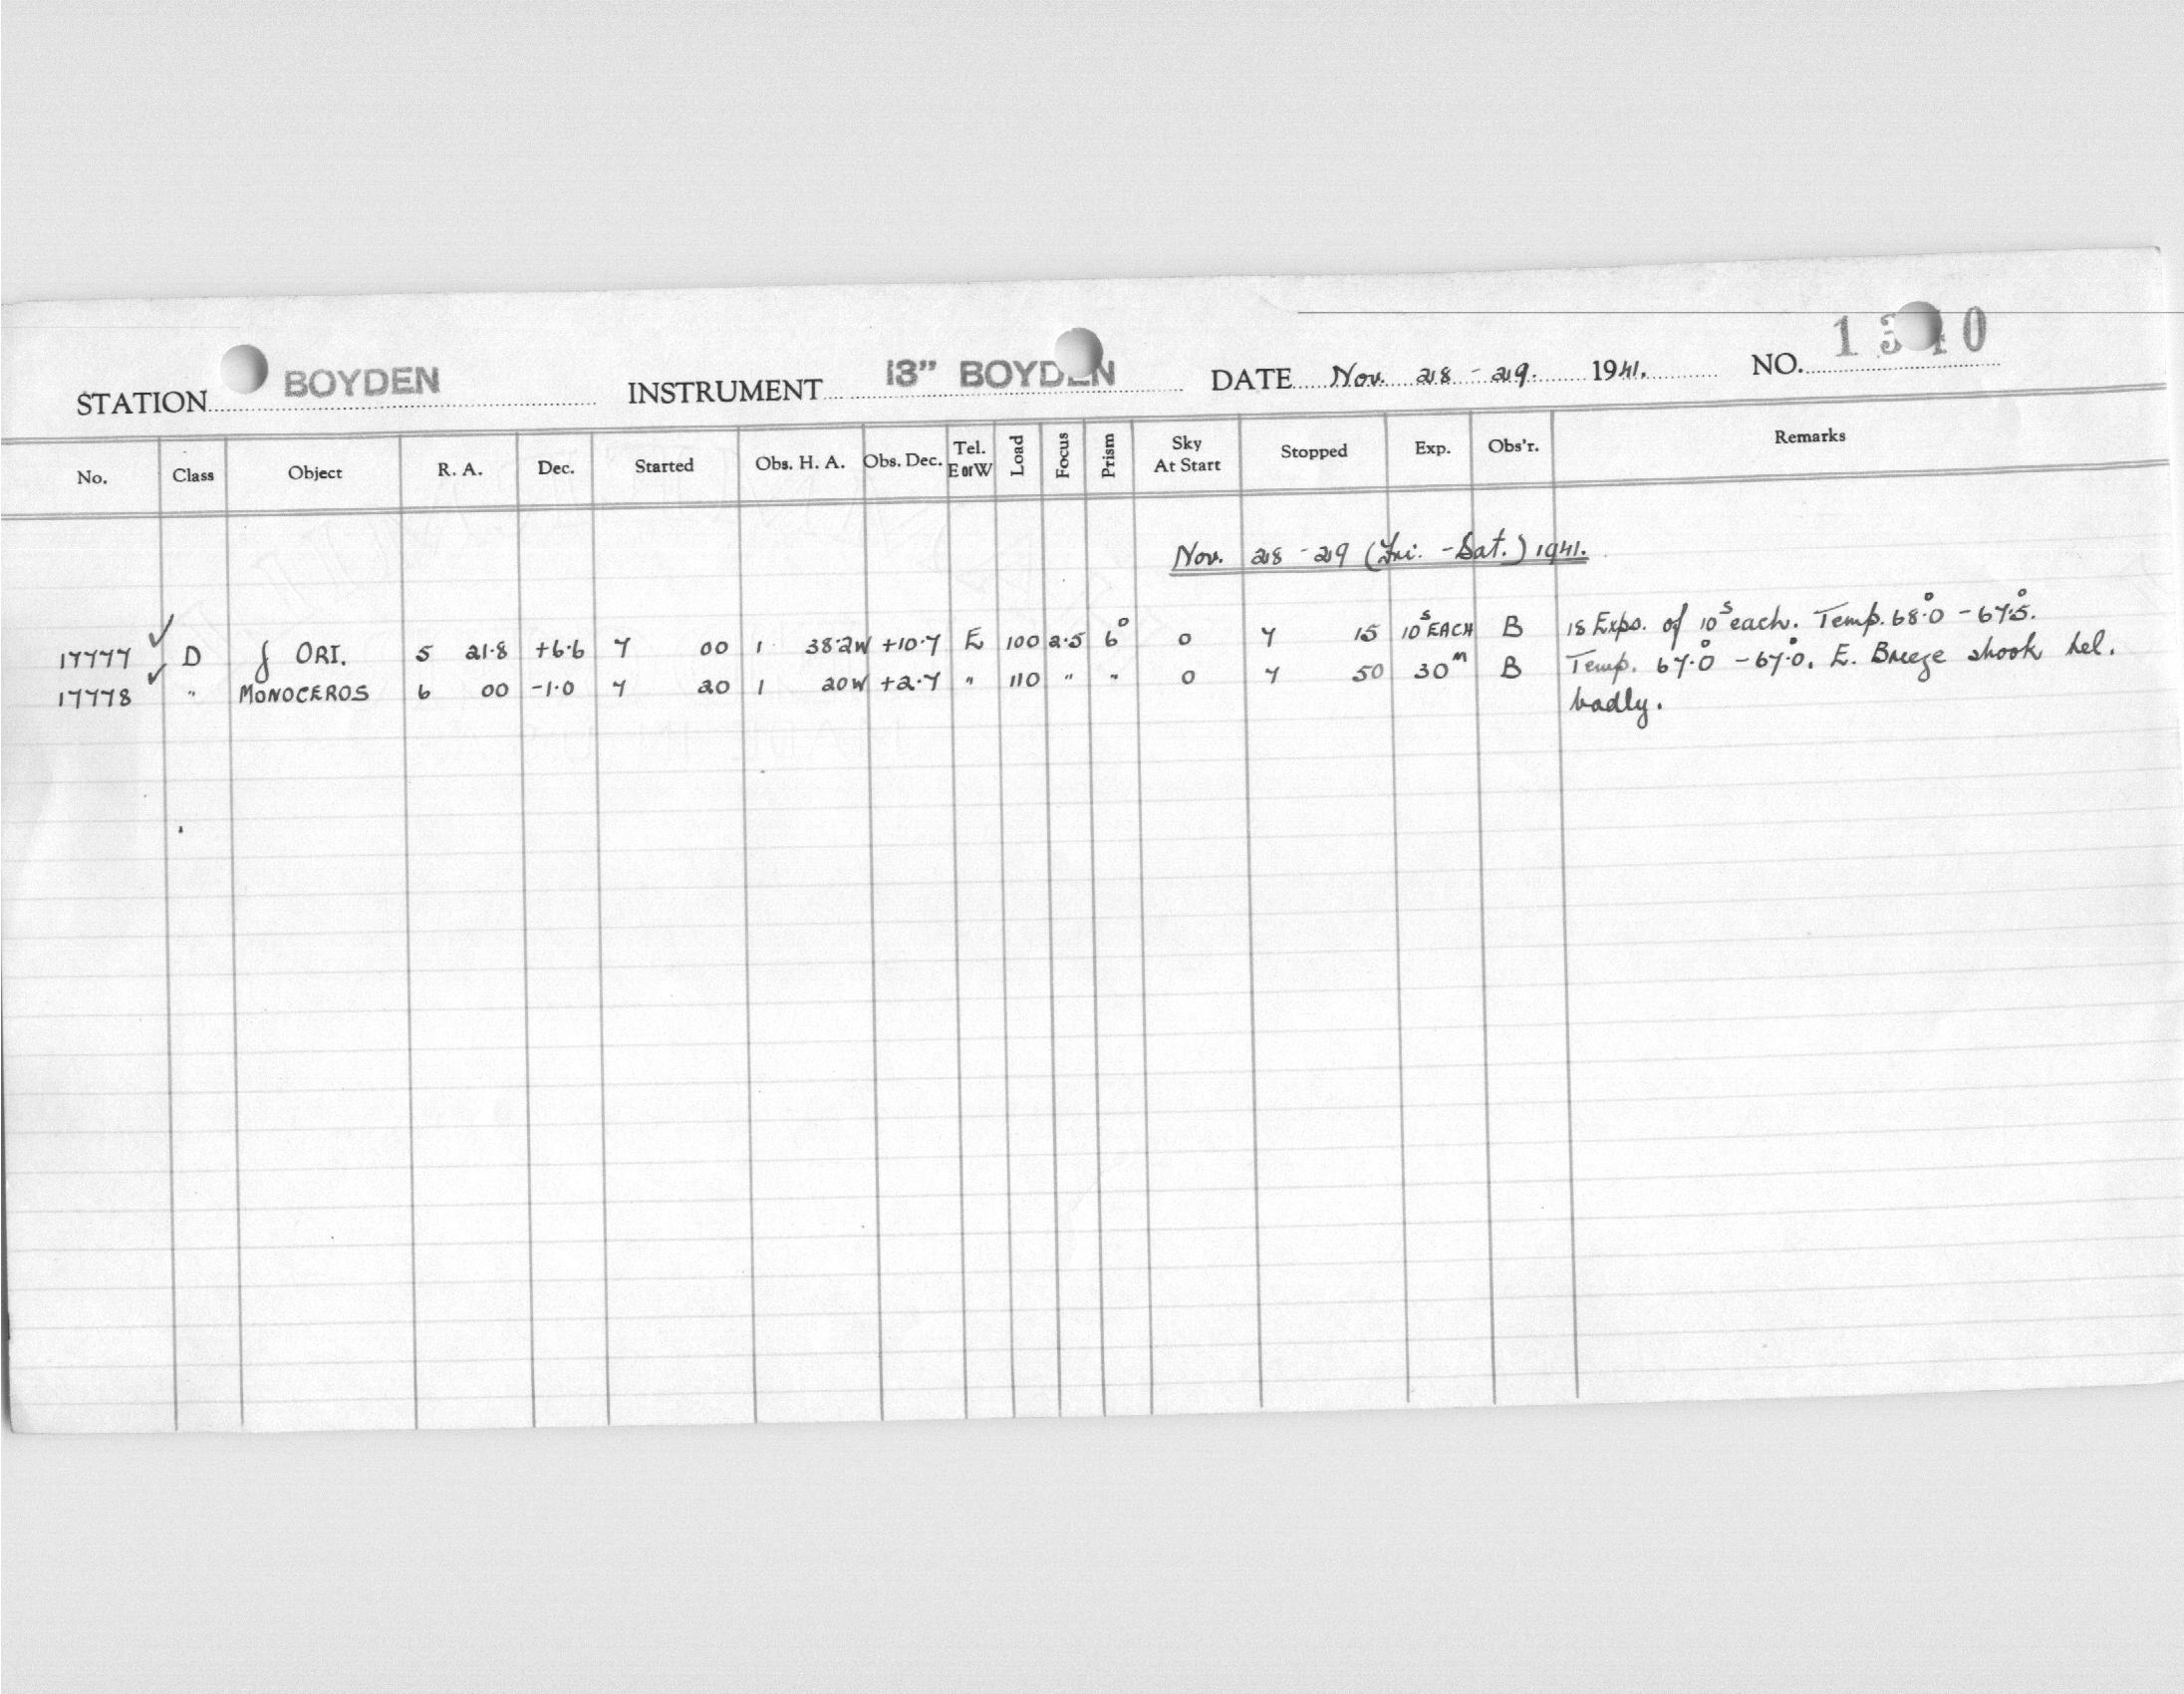 STATION BOYDEN INSTRUMENT 13" BOYDEN DATE Nov. 28 - 29. 1941. NO. 1340
No. Class Object R. A. Dec. Started Obs. H. A. Obs. Dec. Tel. E or W Load Focus Prism Sky At Start Stopped Exp. Obs'r. Remarks
Nov. 28 - 29 (Fri. - Sat.) 1941.
17777 ✓ D ORI. 5 21.8 +6.6 7 00 1 38.2W +10.7 E 100 2.5 6° 0 7 15 10ˢ EACH B 18 Exps. of 10ˢ each. Temp. 68.°0 - 67.°5.
17778 ✓ " MONOCEROS 6 00 -1.0 7 20 1 20W +2.7 " 110 " " 0 7 50 30ᵐ B Temp. 67.°0 - 67.°0. E. Breeze shook tel.
badly.